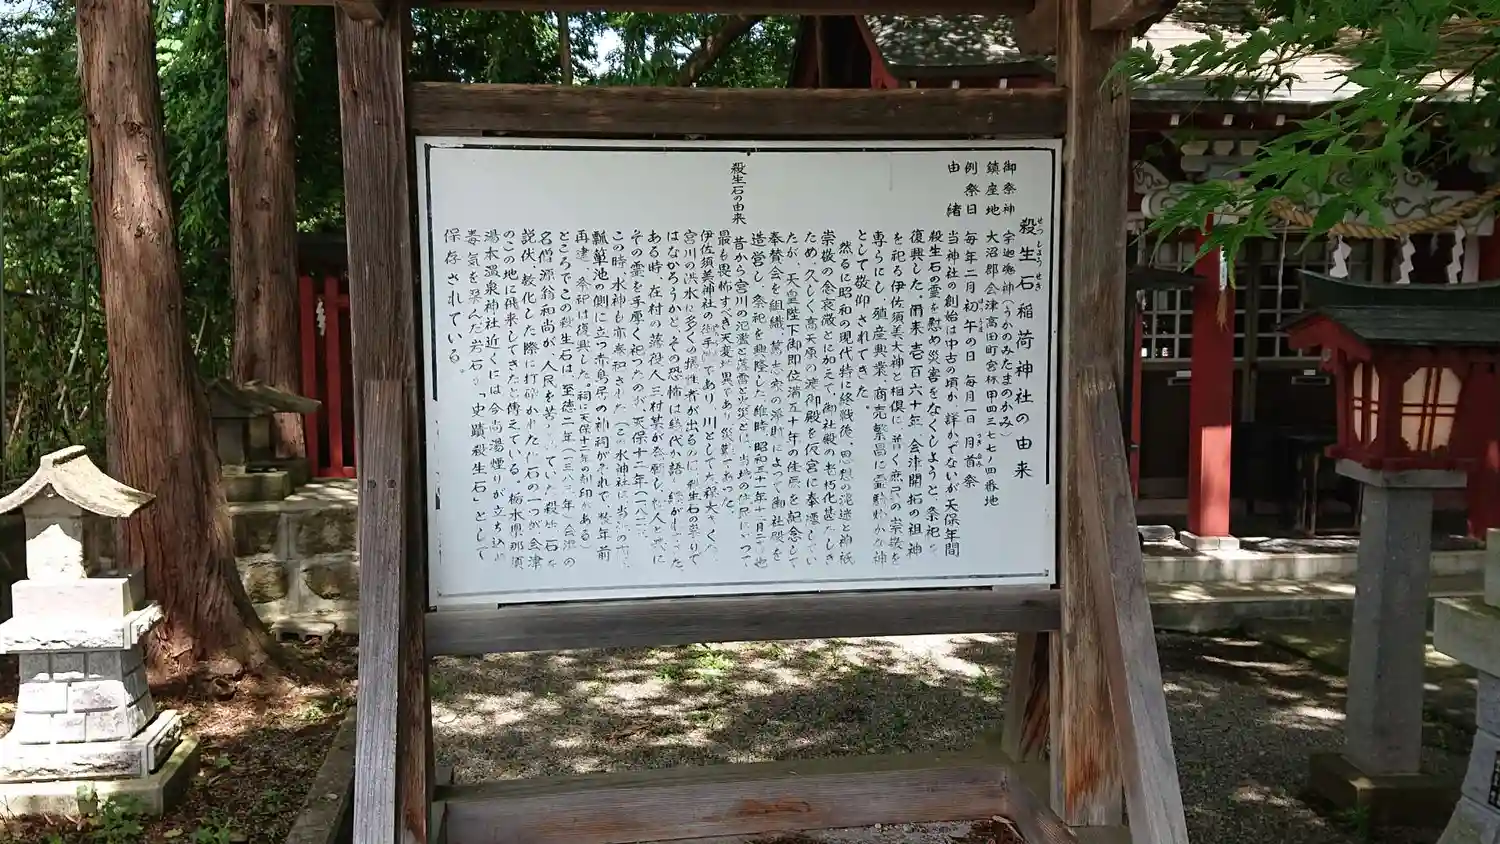 殺生石稲荷神社の由来
せっしょうせき
御祭神 宇迦魂神(うかのみたまのかみ)
鎮座地 大沼郡会津高田町宮林甲四三七七ノ四番地
例祭日 毎年二月初午の日 毎月一日 月首祭
由緒 当神社の創始は中古の頃か、詳かでないが天保年間
殺生石の霊を慰め災害をなくしようと、祭祀を
復興した。爾来壱百六十年、会津開拓の祖神
を祀る伊佐須美大神と相倶に普く庶民の崇敬を
専らにし、殖産興業、商売繁昌に霊験の神
として敬仰されてきた。
然るに昭和の現代特に終戦後、思想の混迷と神祇
崇敬の念衰微とに加えて、御社殿の老朽化甚だしき
ため、久しく高天原の渡御殿を仮宮に奉遷してい
たが、天皇陛下御即位満五十年の佳辰を記念して
奉賛会を組織、篤志家の浄財によって御社殿を
造営し、祭祀を興隆した
殺生石の由来 昔から宮川の氾濫と落雷と火災とは、当地の住民にとって
最も畏怖すべき天変地異であり災難であった。
伊佐須美神社の
宮川の洪水に多くの犠牲者が出るのは殺生石の祟りで
はなかろうかと、その恐怖は
ある時、在村の落役人三村某が発願し
その霊を手厚く祀ったのが、天保十二年
この時、水神も亦奉祀された
瓢箪池の側に立つ赤鳥居の祠
再建、祭祀は復興した。(祠に天保十二年の刻印がある)
ところでこの殺生石は、至徳二年(一三八五年)会津の
名僧源翁和尚が、人民を苦しめていた殺生石を
説伏、教化した際に打砕かれた石の一つが会津
のこの地に飛来してきたと傳えている。栃木県那須
湯本温泉神社近くには今尚湯煙りが立ち込め
毒気を孕んだ岩石が「史蹟殺生石」として
保存されている。